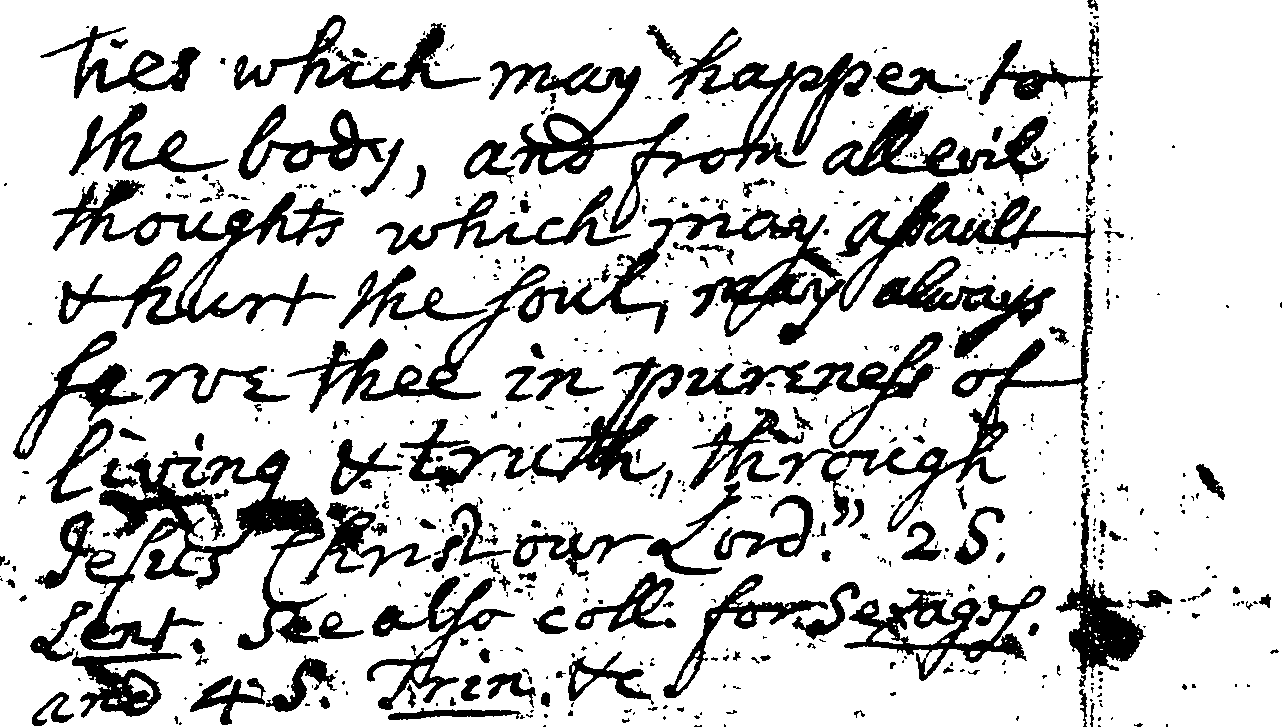 ties which may happen to
the body, and from all evil
thoughts which may aſsault
& hurt the ſoul, may always
ſerve thee in pureneſs of
living & truth, through
Jeſus Christ our Lord." 2 S.
Lent. See alſo coll. for Sexageſ.
and 4 S. Trin. &c.